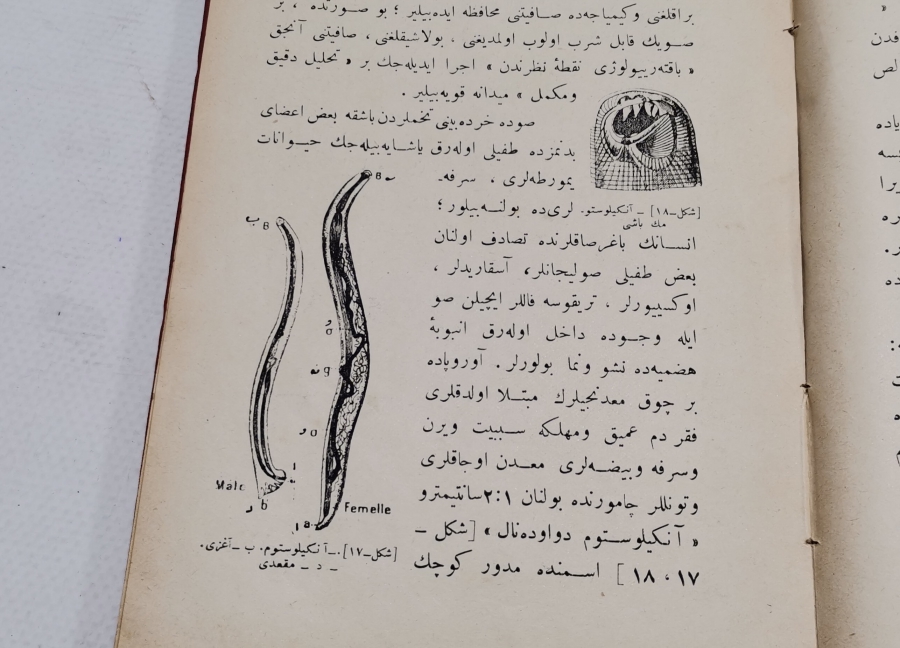 براقلغنی وكیمیاجه‌ده صافیتنی محافظه ایده‌بیلیر ؛ بو صورتده ، بر
صویك قابل شرب اولوب اولمدیغنی ، بولاشیقلغنی ، صافیتنی آنجق
« باقته‌ریولوژی نقطهٔ نظرندن » اجرا ایدیله‌جك بر « تحلیل دقیق
ومكمل » میدانه قویه‌بیلیر .
صوده خرده‌بینی تخملردن باشقه بعض اعضای
بدنمزده طفیلی اوله‌رق یاشایه‌بیله‌جك حیوانات
یمورطه‌لری ، سرفه‌-
لری‌ده بولنه‌بیلور ؛
[شكل-۱۸] - آنكیلوستو.
مك باشی
انسانك باغرصاقلرنده تصادف اولنان
بعض طفیلی صولیجانلر، آسقاریدلر ،
اوكسیورلر ، تریقوسه فاللر ایچیلن صو
ایله وجوده داخل اوله‌رق انبوبهٔ
هضمیه‌ده نشو ونما بولورلر . آوروپاده
بر چوق معدنجیلرك مبتلا اولدقلری
فقر دم عمیق ومهلكه سببیت ویرن
وسرفه وبیضه‌لری معدن اوجاقلری
وتونللر چامورنده بولنان ۲:۱سانتیمترو
« آنكیلوستوم دواوده‌نال » [شكل -
۱۷ ، ۱۸ ] اسمنده مدور كوچك
B ب
ب B
و
g
و
Male
b د
Femelle
ا a
[شكل-۱۷].-آنكیلوستوم. ب -آغزی.
- د - مقعدی